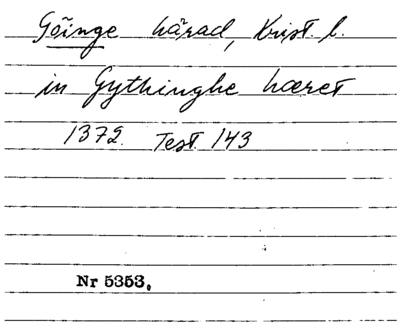 Göinge härad, Krist. l.
in Gythinghe hæret
1372. Test. 143
Nr 5353.